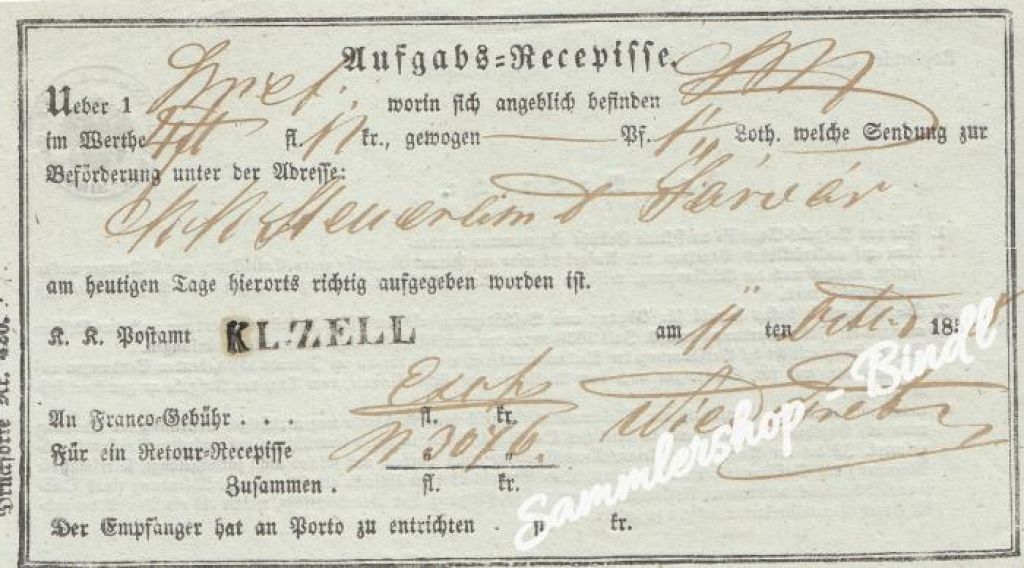 Aufgabs-Recepisse.
Ueber 1 Brief. worin sich angeblich befinden
im Werthe fl. 11 kr., gewogen Pf. Loth. welche Sendung zur
Beförderung unter der Adresse:
KK Steueramt Sárvár
am heutigen Tage hierorts richtig aufgegeben worden ist.
K. K. Postamt KL.ZELL am 11 ten 185
An Franco-Gebühr . . . fl. kr.
Für ein Retour-Recepisse N 3046. " "
Zusammen . fl. kr.
Der Empfänger hat an Porto zu entrichten . " kr.
Drucksorte Nr. 420.
Sammlershop - Bindl